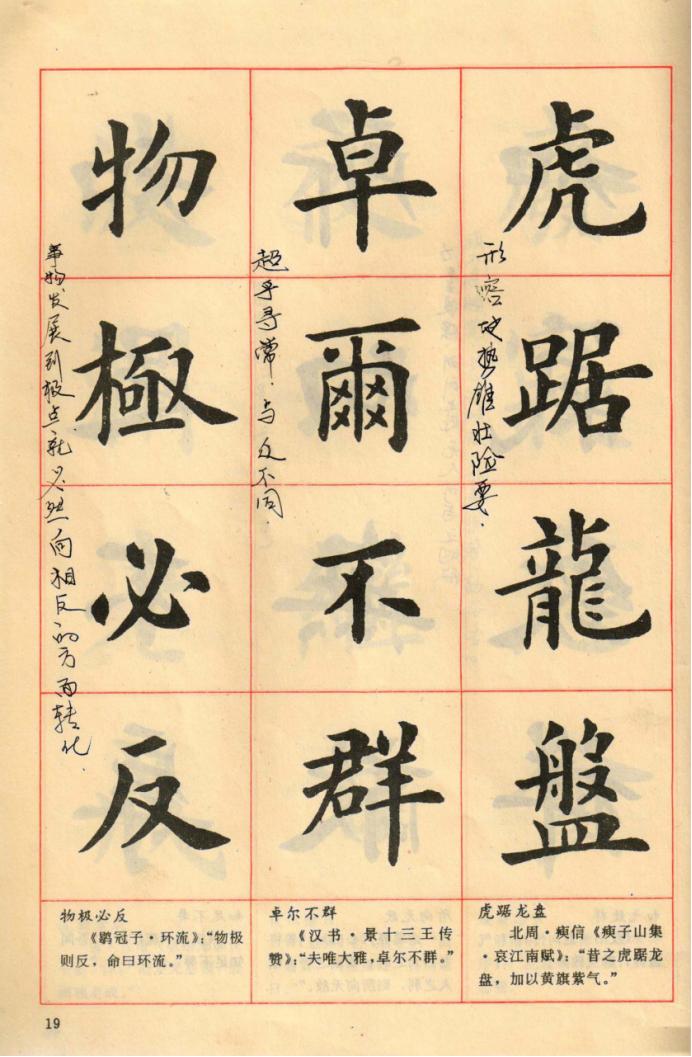 虎踞龍盤
形容地势雄壮险要.
卓爾不群
超乎寻常.与众不同.
物極必反
事物发展到极点.就必然向相反的方面转化.
虎踞龙盘
北周·瘐信《瘐子山集
·哀江南赋》：“昔之虎踞龙
盘，加以黄旗紫气。”
卓尔不群
《汉书·景十三王传
赞》：“夫唯大雅，卓尔不群。”
物极必反
《鹖冠子·环流》：“物极
则反，命曰环流。”
19